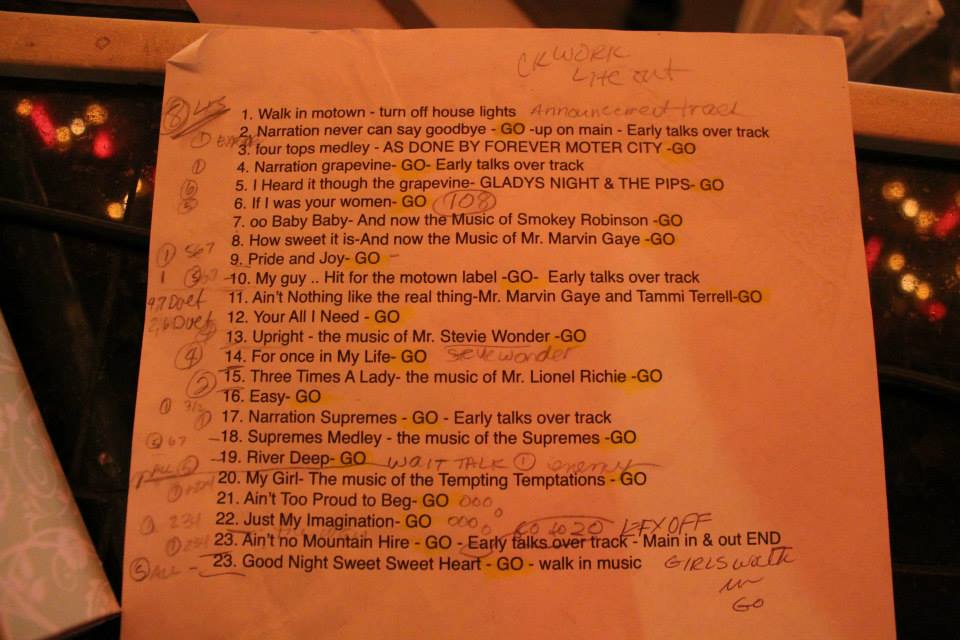 CK WORK
Lite out
8 1. Walk in motown - turn off house lights Announcement track
1 2. Narration never can say goodbye - GO -up on main - Early talks over track
3. four tops medley - AS DONE BY FOREVER MOTER CITY -GO
1 4. Narration grapevine- GO- Early talks over track
6 5. I Heard it though the grapevine- GLADYS NIGHT & THE PIPS- GO
5 6. If I was your women- GO 108
7. oo Baby Baby- And now the Music of Smokey Robinson -GO
8. How sweet it is-And now the Music of Mr. Marvin Gaye -GO
1 567 9. Pride and Joy- GO -
1 5 67 -10. My guy .. Hit for the motown label -GO- Early talks over track
9,7 Duet 11. Ain't Nothing like the real thing-Mr. Marvin Gaye and Tammi Terrell-GO
2,6 Duet 12. Your All I Need - GO
13. Upright - the music of Mr. Stevie Wonder -GO
4 14. For once in My Life- GO Stevie wonder
2 15. Three Times A Lady- the music of Mr. Lionel Richie -GO
16. Easy- GO
1 17. Narration Supremes - GO - Early talks over track
5 67 -18. Supremes Medley - the music of the Supremes -GO
-19. River Deep- GO WAIT TALK 1 enemy
20. My Girl- The music of the Tempting Temptations - GO
21. Ain't Too Proud to Beg- GO ooo
1 231 22. Just My Imagination- GO ooo GO to 20 EFX OFF
1 231 23. Ain't no Mountain Hire - GO - Early talks over track - Main in & out END
5 ALL - 23. Good Night Sweet Sweet Heart - GO - walk in music GIRLS walk
in
GO